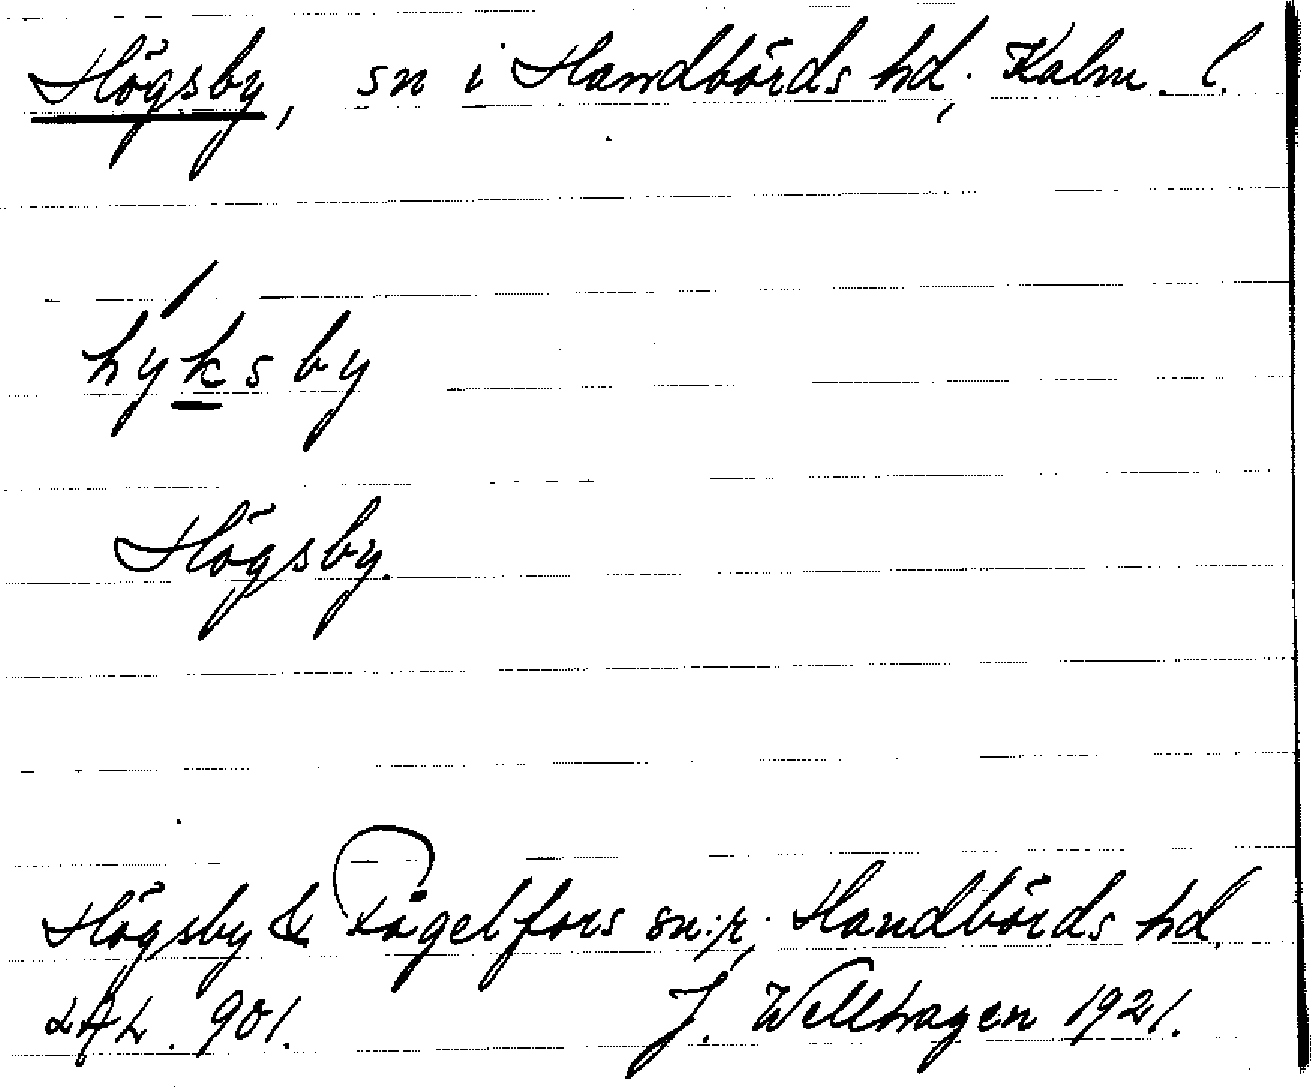 Högsby, sn i Handbörds hd, Kalm. l.
hýksby
Högsby.
Högsby & Fågelfors sn:r, Handbörds hd.
LAL. 901. J. Wellhagen 1921.